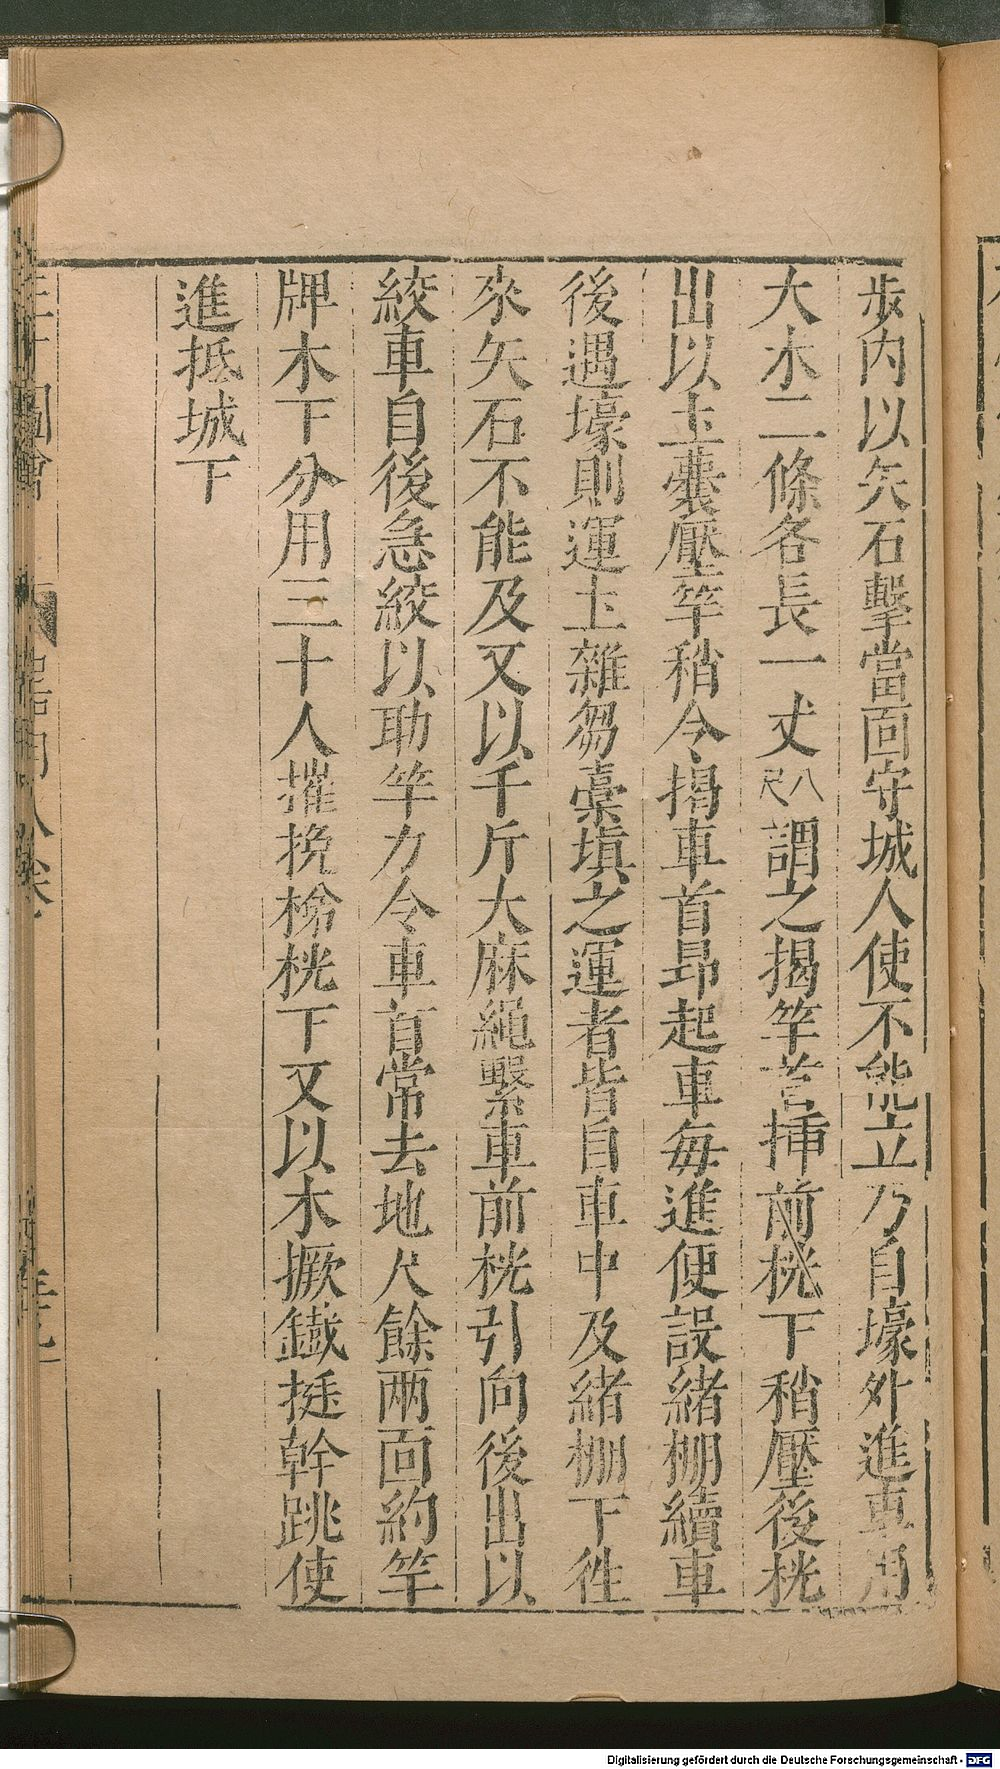 歩内以矢石擊當面守城人使不能立乃自壕外進車用
大木二條各長一丈八尺謂之揭竿首挿前桄下稍壓後桄
出以土囊壓竿稍令揭車首昻起車每進便設緒棚續車
後遇壕則運土雜芻藁塡之運者皆自車中及緒棚下徃
來矢石不能及又以千斤大麻繩繫車前桄引向後出以
絞車自後急絞以助竿力令車首常去地尺餘兩面約竿
牌木下分用三十人㩁挽梯桄下又以木撅鐵挺幹跳使
進抵城下
三才圖會
器用八卷
Digitalisierung gefördert durch die Deutsche Forschungsgemeinschaft - DFG